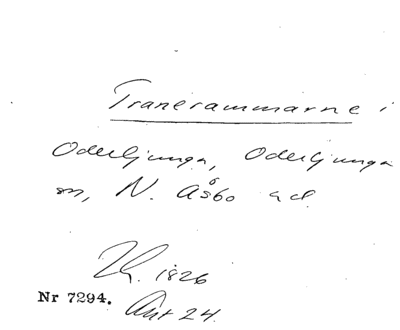 Tranerammarne i
Oderljunga, Oderljunga
sn, N. Åsbo hd
Th. 1826
Nr 7294. Akt 24.